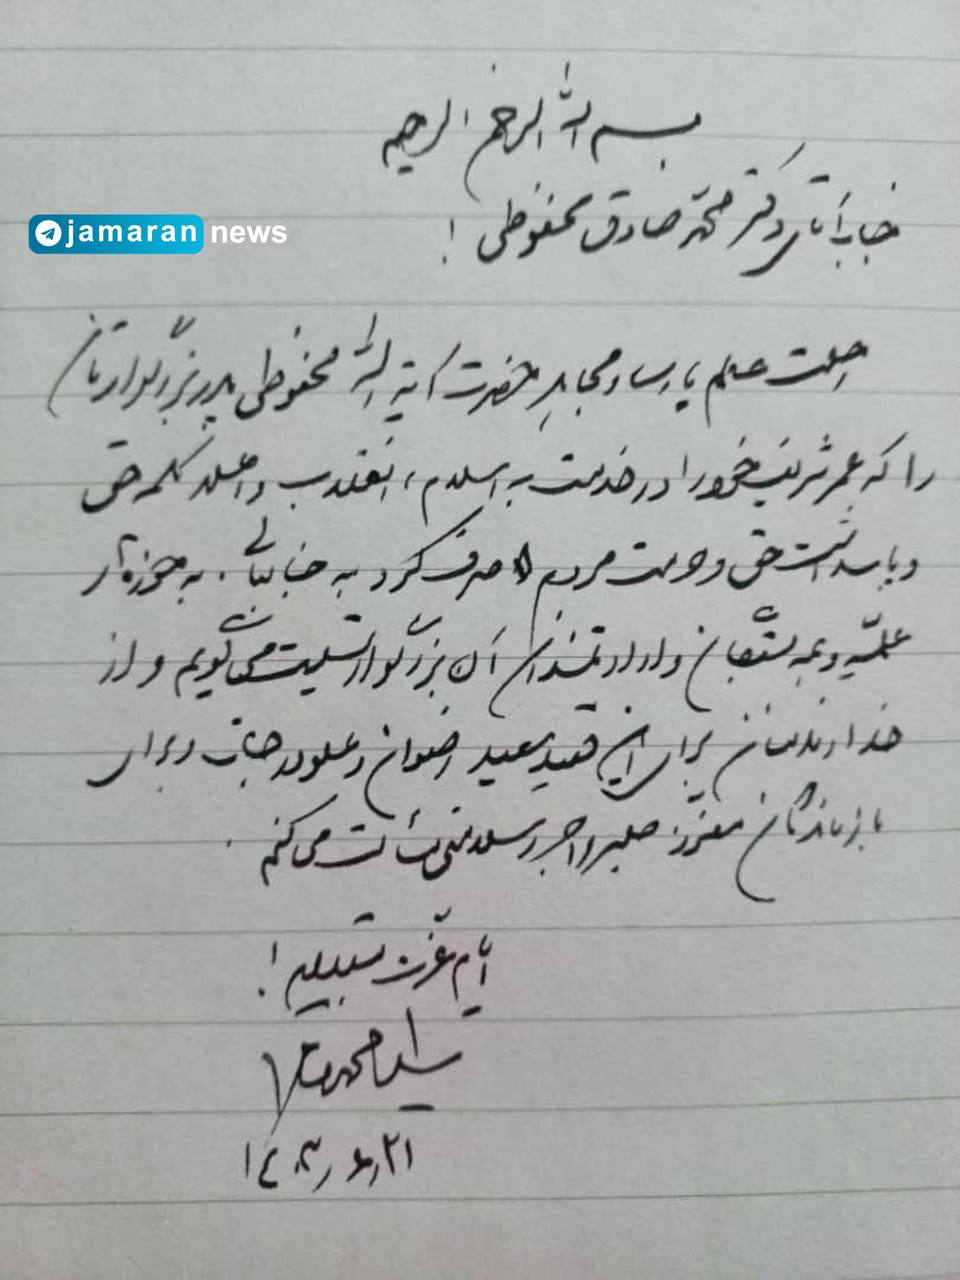 بسم الله الرحمن الرحیم
jamaran news
جناب آقای دکتر محمدصادق محفوظی!
رحلت عالم پارسا و مجاهد حضرت آیة الله محفوظی پدر بزرگوارتان
را که عمر شریف خود را در خدمت به اسلام، انقلاب و اعلاء کلمه حق
و پاسداشت حق و حرمت مردم صرف کرد به جنابعالی، به حوزه‌های
علمیه و به بستگان و ارادتمندان آن بزرگوار تسلیت می‌گویم و از
خداوند منان برای این فقید سعید رضوان و علو درجات و برای
بازماندگان معزز صبر و اجر و سلامتی مسألت می‌کنم.
ایام عزت مستدام!
سید محمد خاتمی
۱۴۰۳/۶/۲۱